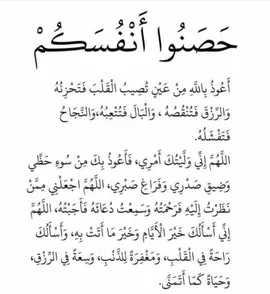 حَصِّنُوا أَنْفُسَكُمْ
أَعُوذُ بِاللَّهِ مِنْ عَيْنٍ تُصِيبُ الْقَلْبَ فَتَحْزِنُهُ
وَالرِّزْقَ فَتُنْقُصُهُ ، وَالْبَالَ فَتُتْعِبُهُ،وَالنَّجَاحُ
فَتَفْشَلُهُ.
اللَّهُمَّ إِنِّي وَلَّيْتُكَ أَمْرِي، فَأَعُوذُ بِكَ مِنْ سُوءِ حَظِّي
وَضِيقِ صَدْرِي وَفَرَاغِ صَبْرِي، اللَّهُمَّ اجْعَلْنِي مِمَّنْ
نَظَرْتُ إِلَيْهِ فَرَحْمَتُهُ وَسَمِعْتُ دُعَائَهُ فَأَجَبْتُهُ، اللَّهُمَّ
إِنِّي أَسْأَلُكَ خَيْرَ الْأَيَّامِ وَخَيْرَ مَا أَتَتْ بِهِ، وَأَسْأَلُكَ
رَاحَةً فِي الْقَلْبِ، وَمَغْفِرَةً لِلذَّنْبِ، وَسِعَةً فِي الرِّزْقِ،
وَحَيَاةً كَمَا أَتَمَنَّى.